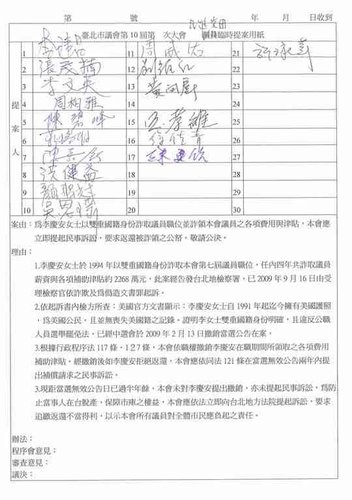 第 號 年 月 日收到
民進黨團
臺北市議會第10屆第 次大會 議員臨時提案用紙
提案人
1 11 周威佑 21 許淑華
2 12 劉耀仁 22
3 李文英 13 黃向群 23
4 周柏雅 14 24
5 陳碧峰 15 王孝維 25
6 16 徐佳青 26
7 17 莊瑞雄 27
8 洪健益 18 28
9 顏聖冠 19 29
10 吳思瑤 20 30
案由：為李慶安女士以雙重國籍身份詐取議員職位並詐領本會議員之各項費用與津貼，本會應
立即提起民事訴訟，要求返還被詐領之公帑，敬請公決。
理由：
1.李慶安女士於 1994 年以雙重國籍身份詐取本會第七屆議員職位，任內四年共詐取議員
薪資與各項補助津貼約 2268 萬元，此案經告發台北地檢署，已 2009 年 9 月 16 日由受
理檢察官依詐欺及偽造文書罪起訴。
2.依起訴書內檢方所查：美國官方文書顯示：李慶安女士自 1991 年起迄今擁有美國護照
，為美國公民，且並無喪失美國籍之記錄。證明李女士雙重國籍身份明確，且違反公職
人員選舉罷免法，已經中選會於 2009 年 2 月 13 日撤銷當選公告在案。
3.根據行政程序法 117 條，127 條，本會依職權撤銷李慶安在職期間所領取之各項費用
補助津貼，經撤銷後如李慶安拒絕返還，本會應依同法 121 條在當選無效公告兩年內提
出補償請求之民事訴訟。
3.現距當選無效公告日已過半年餘，本會未對李慶安提出撤銷，亦未提起民事訴訟，為防
止當事人在台脫產，保障市庫之權益，本會應依法立即向台北地方法院提起訴訟，要求
追繳返還不當得利，以示本會所有議員對全體市民應負起之責任。
辦法：
程序會意見：
審查意見：
議決：